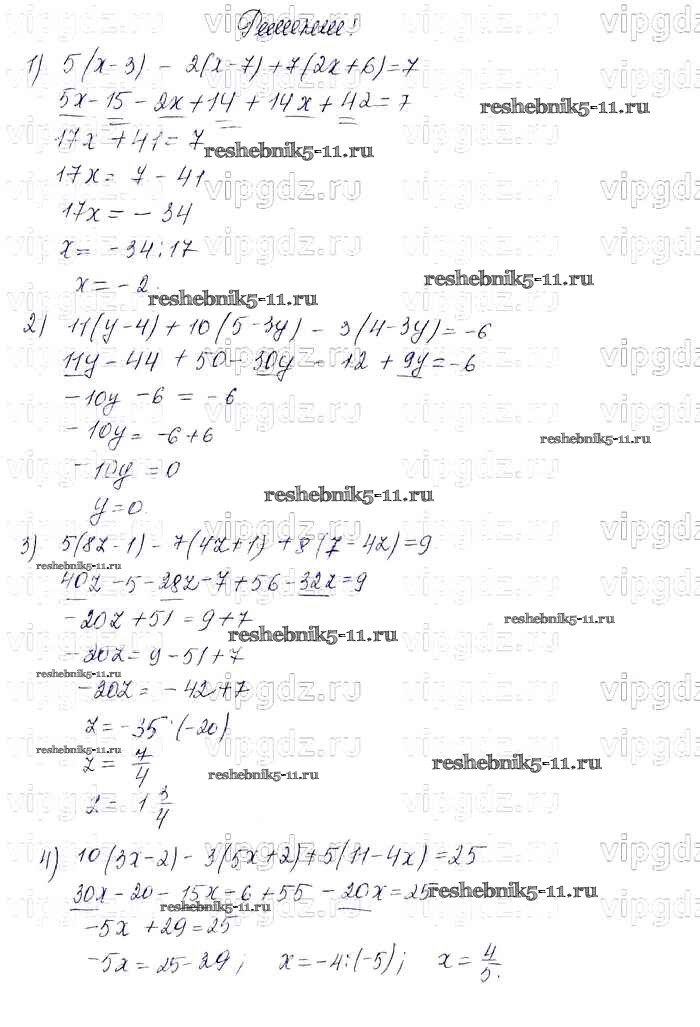 Решение!
1) 5(x-3) - 2(x-7) + 7(2x+6) = 7
5x - 15 - 2x + 14 + 14x + 42 = 7
17x + 41 = 7
17x = 7 - 41
17x = -34
x = -34:17
x = -2.
2) 11(y-4) + 10(5-3y) - 3(4-3y) = -6
11y - 44 + 50 - 30y - 12 + 9y = -6
-10y - 6 = -6
-10y = -6+6
-10y = 0
y = 0.
3) 5(8z-1) - 7(4z+1) + 8(7-4z) = 9
40z - 5 - 28z - 7 + 56 - 32z = 9
-20z + 51 = 9+7
-20z = 9-51+7
-20z = -42+7
z = -35:(-20)
z = 7/4
z = 1 3/4
4) 10(3x-2) - 3(5x+2) + 5(11-4x) = 25
30x - 20 - 15x - 6 + 55 - 20x = 25
-5x + 29 = 25
-5x = 25-29; x = -4:(-5); x = 4/5.
reshebnik5-11.ru
vipgdz.ru